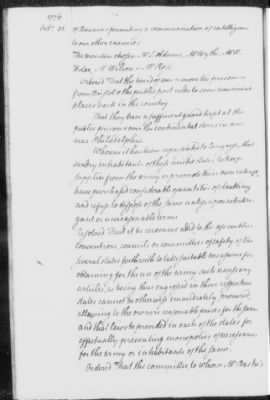 1776
Octr. 31
of Commerce & promoting a communication of intelligence
to and from other countries.
The members chosen Mr. S. Adams, Mr. Wythe, Mr. W.
Mr. Wilson, Mr. Ro.
Ordered That the board of war remove the prisoners
from Bristol & the public post roads to some convenient
places back in the country.
That they have a sufficient guard kept at the
public prison & over the continental stores in and
near Philadelphia
Whereas it has been represented to Congress, that
sundry inhabitants of these united states to
supplies from the army or promote their own interest
have purchased considerable quantities of cloathing
and refuse to dispose of the same unless upon extravagant
or unreasonable terms
Resolved That it be recommended to the assemblies
conventions, councils or committees of safety of the
several states forthwith to take suitable measures for
obtaining for the use of the army such necessary
articles, as being thus engrossed in their respective
states cannot be otherwise immediately procured,
allowing to the owners reasonable prices for the same
and that laws be provided in each of the states for
effectually preventing monopolies of necessaries
for the army or inhabitants of the same.
Ordered That the committee to whom Mr.